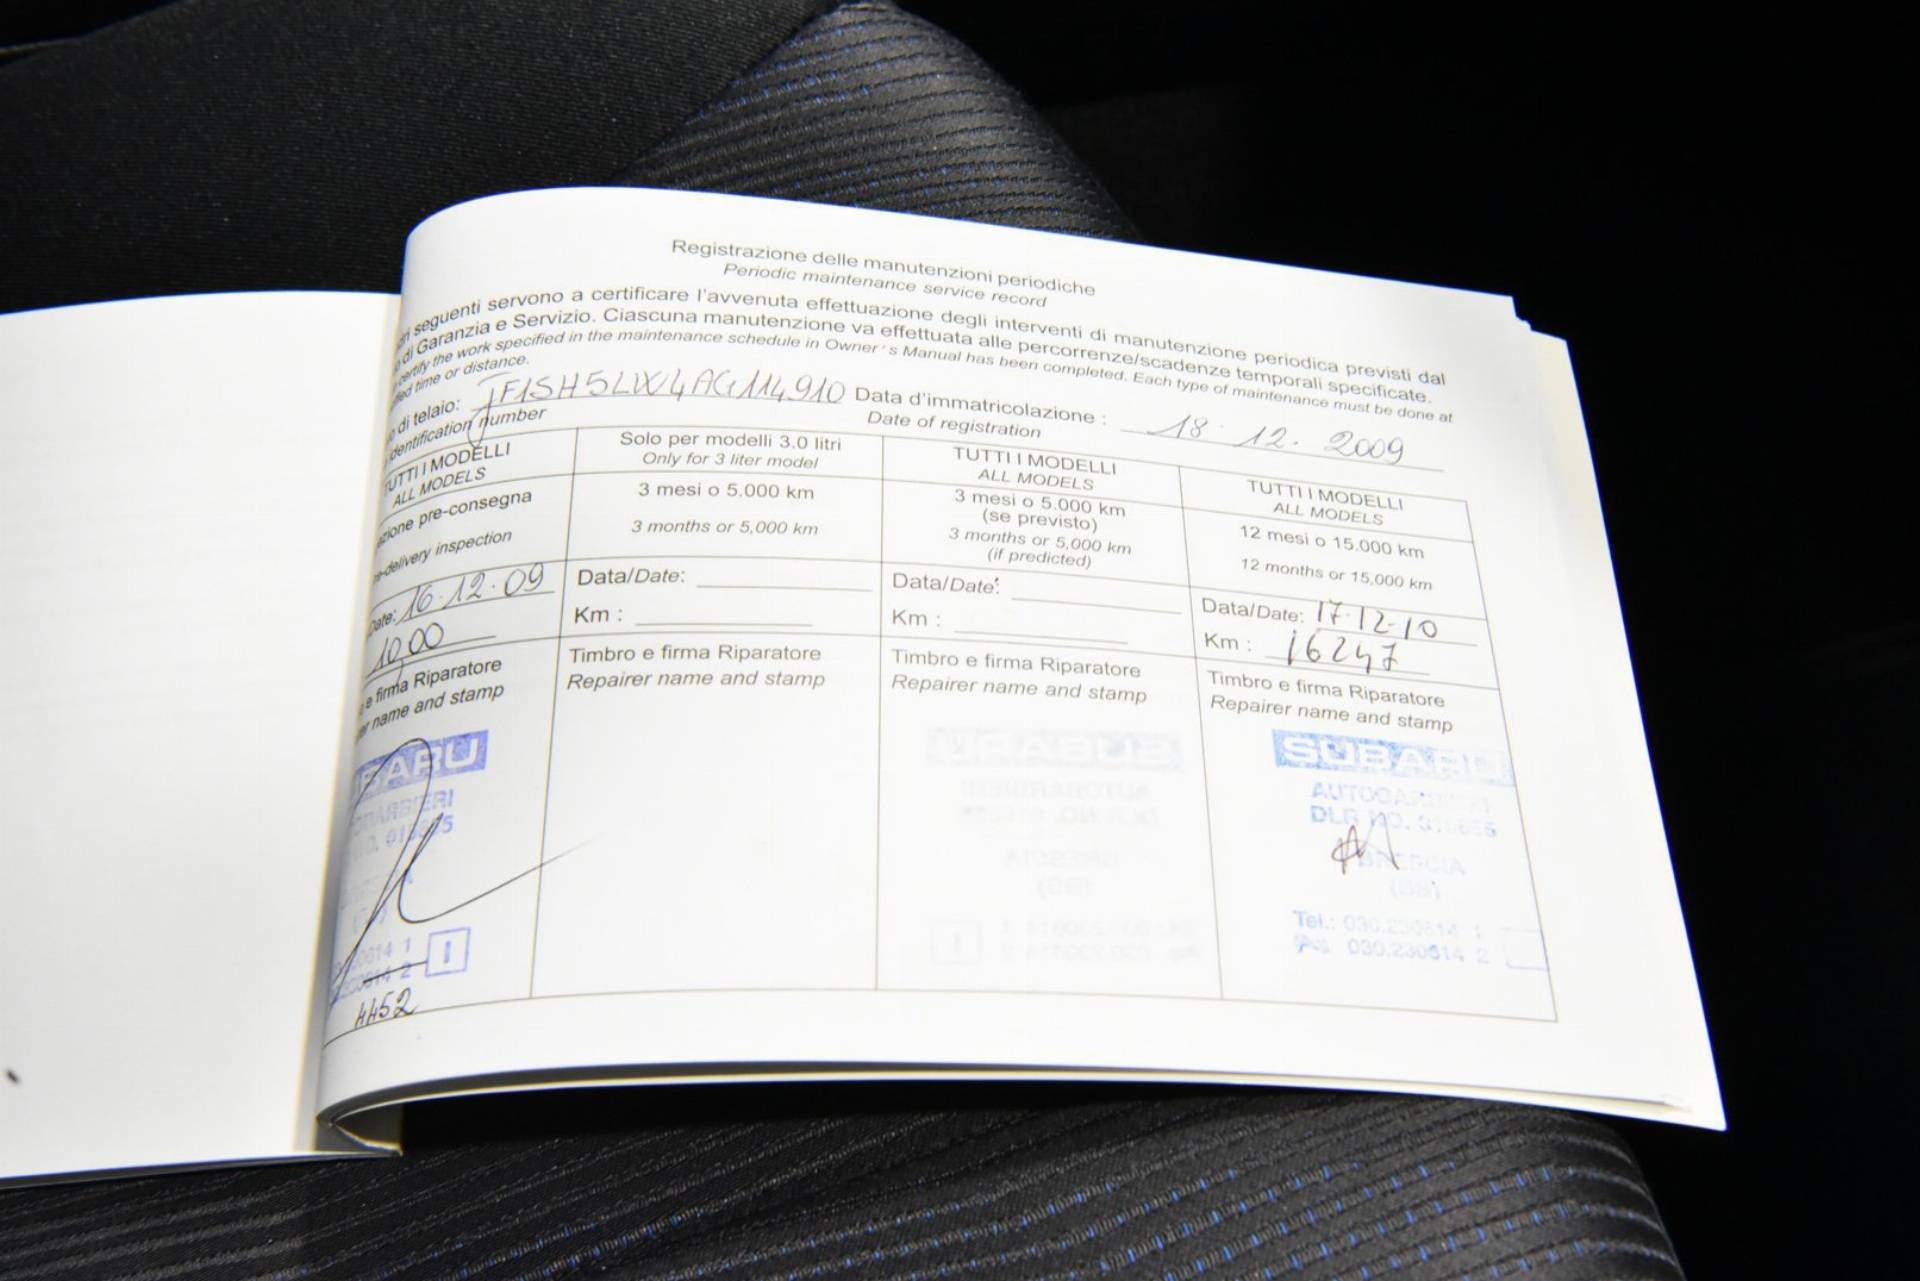 Registrazione delle manutenzioni periodiche
Periodic maintenance service record
seguenti servono a certificare l'avvenuta effettuazione degli interventi di manutenzione periodica previsti dal
di Garanzia e Servizio. Ciascuna manutenzione va effettuata alle percorrenze/scadenze temporali specificate.
certify the work specified in the maintenance schedule in Owner's Manual has been completed. Each type of maintenance must be done at
time or distance.
di telaio: JF1SH5LW4AG114910 Data d'immatricolazione : 18.12.2009
identification number Date of registration
TUTTI I MODELLI
ALL MODELS
pre-consegna
inspection
Date: 16.12.09
10,00
e firma Riparatore
name and stamp
4452
Solo per modelli 3.0 litri
Only for 3 liter model
3 mesi o 5.000 km
3 months or 5,000 km
Data/Date:
Km :
Timbro e firma Riparatore
Repairer name and stamp
TUTTI I MODELLI
ALL MODELS
3 mesi o 5.000 km
(se previsto)
3 months or 5,000 km
(if predicted)
Data/Date:
Km :
Timbro e firma Riparatore
Repairer name and stamp
TUTTI I MODELLI
ALL MODELS
12 mesi o 15.000 km
12 months or 15,000 km
Data/Date: 17.12.10
Km : 16247
Timbro e firma Riparatore
Repairer name and stamp
SUBARU
AUTOBARBIERI
DLR NO.
BRESCIA
(BS)
Tel.: 030.230614 1
030.230614 2